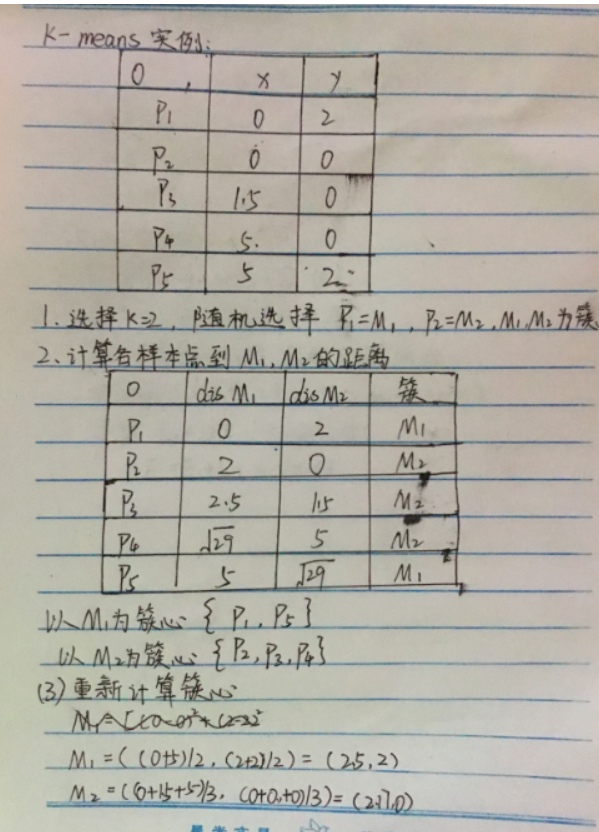 K-means 实例:
O x y
P1 0 2
P2 0 0
P3 1.5 0
P4 5. 0
P5 5 2
1. 选择 K=2, 随机选择 P1=M1, P2=M2, M1, M2为簇
2. 计算各样本点到 M1, M2的距离
O dis M1 dis M2 簇
P1 0 2 M1
P2 2 0 M2
P3 2.5 1.5 M2
P4 √29 5 M2
P5 5 √29 M1
以M1为簇心 {P1, P5}
以M2为簇心 {P2, P3, P4}
(3) 重新计算簇心
M1=((0+5)/2, (2+2)/2) = (2.5, 2)
M2=((0+1.5+5)/3, (0+0+0)/3) = (2.17,0)